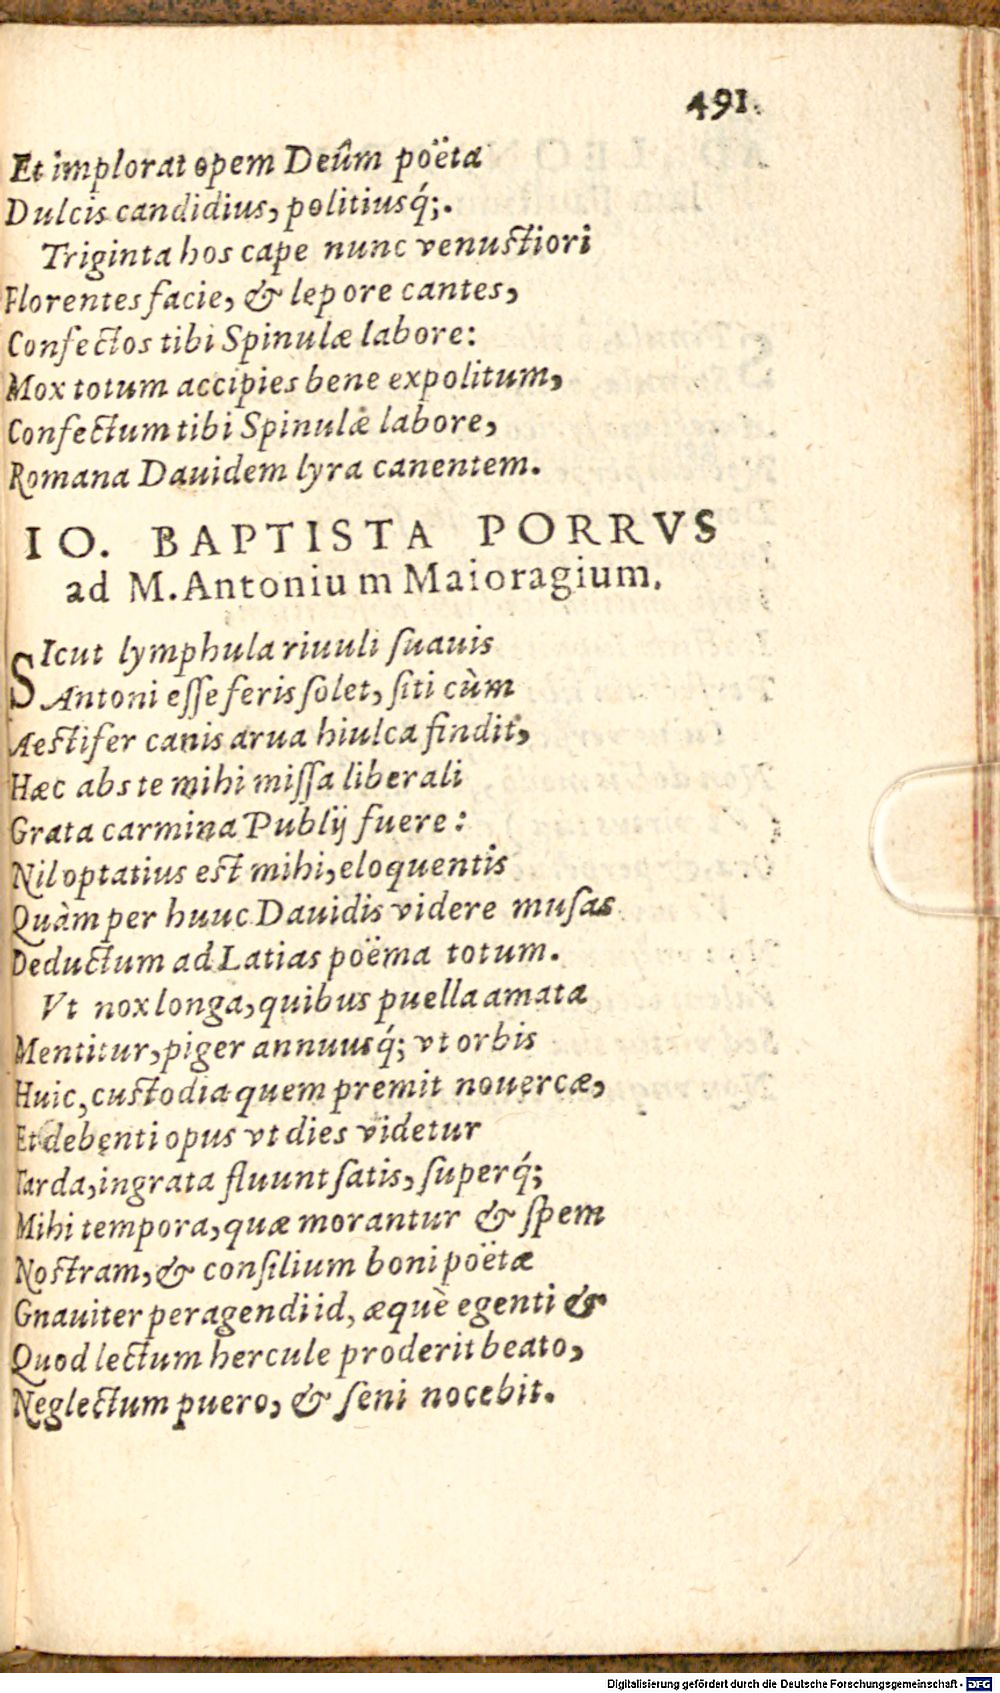 491.
Et implorat opem Deûm poëta
Dulcis candidius, politiusq́;.
Triginta hos cape nunc venustiori
Florentes facie, & lepore cantes,
Confectos tibi Spinulæ labore:
Mox totum accipies bene expolitum,
Confectum tibi Spinulæ labore,
Romana Dauidem lyra canentem.
IO. BAPTISTA PORRVS
ad M. Antonium Maioragium.
SIcut lymphula riuuli suauis
Antoni esse feris solet, siti cùm
Aestifer canis arua hiulca findit,
Hæc abs te mihi missa liberali
Grata carmina Publij fuere:
Nil optatius est mihi, eloquentis
Quàm per huuc Dauidis videre musas
Deductum ad Latias poëma totum.
Vt nox longa, quibus puella amata
Mentitur, piger annuusq́; vt orbis
Huic, custodia quem premit nouercæ,
Et debenti opus vt dies videtur
Tarda, ingrata fluunt satis, superq́;
Mihi tempora, quæ morantur & spem
Nostram, & consilium boni poëtæ
Gnauiter peragendi id, æquè egenti &
Quod lectum hercule proderit beato,
Neglectum puero, & seni nocebit.
Digitalisierung gefördert durch die Deutsche Forschungsgemeinschaft - DFG